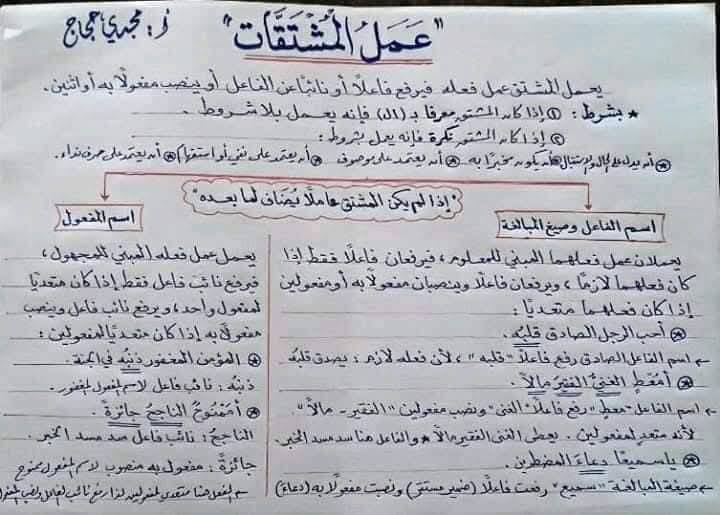 "عَمَلُ المُشتَقَّات"
أ: مجدي حجاج
يعمل المشتق عمل فعله فيرفع فاعلًا أو نائبًا عن الفاعل أو ينصب مفعولًا به أو اثنين.
* بشرط: ① إذا كان المشتق معرفا بـ (ال) فإنه يعمل بلا شروط.
② إذا كان المشتق نكرة فإنه يعمل بشروط:
* أن يدل على الحال والاستقبال * أن يكون مخبرًا به * أن يعتمد على موصوف * أن يعتمد على نفي أو استفهام * أن يعتمد على حرف نداء.
"إذا لم يكن المشتق عاملًا يُضاف لما بعده"
اسم الفاعل وصيغ المبالغة
يعملان عمل فعلهما المبني للمعلوم، فيرفعان فاعلًا فقط إذا
كان فعلهما لازمًا، ويرفعان فاعلًا وينصبان مفعولًا به أو مفعولين
إذا كان فعلهما متعديًا:
* أحب الرجل الصادق قلبُه.
← اسم الفاعل الصادق رفع فاعلًا "قلبه"، لأن فعله لازم: يصدق قلبُه
* أمُعْطٍ الغنيُّ الفقيرَ مالًا.
← اسم الفاعل "معطٍ" رفع فاعلًا "الغنى" ونصب مفعولين "الفقير - مالًا".
لأنه متعد لمفعولين. يعطى الغنى الفقير مالًا * والفاعل هنا سد مسد الخبر.
* يا سميعًا دعاءَ المضطرين.
← صيغة المبالغة "سميع" رفعت فاعلًا (ضمير مستتر) ونصبت مفعولًا به (دعاء)
اسم المفعول
يعمل عمل فعله المبني للمجهول،
فيرفع نائب فاعل فقط إذا كان متعديًا
لمفعول واحد، ويرفع نائب فاعل وينصب
مفعولًا به إذا كان متعديًا لمفعولين:
* المؤمن المغفور ذنبُه في الجنة.
ذنبُه: نائب فاعل لاسم المفعول المغفور.
* أممنوحٌ الناجحُ جائزةً.
الناجحُ: نائب فاعل سد مسد الخبر.
جائزةً: مفعول به منصوب لاسم المفعول ممنوح
← الفعل هنا متعدي لمفعولين لذا رفع نائب الفاعل ونصب المفعول